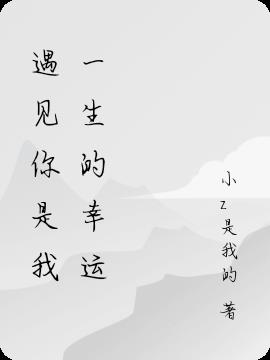 遇见你是我
一生的幸运
小z是我的 著